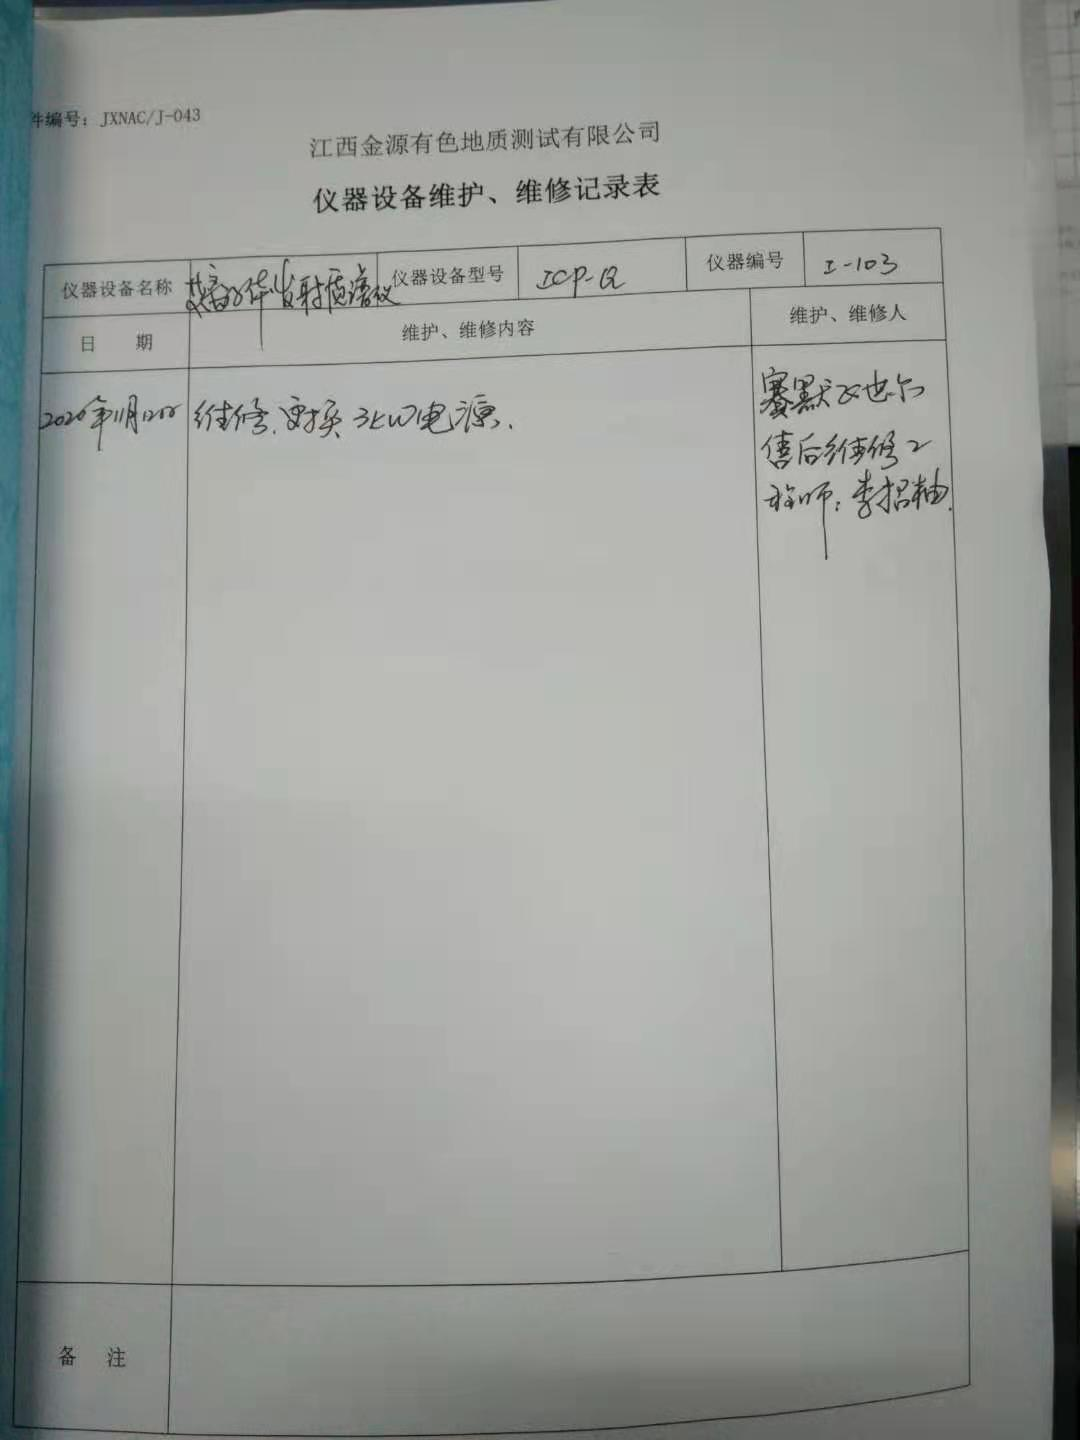 件编号：JXNAC/J-043
江西金源有色地质测试有限公司
仪器设备维护、维修记录表
仪器设备名称 发射质谱仪 仪器设备型号 ICP-Q 仪器编号 I-103
日 期 维护、维修内容 维护、维修人
2020年11月12 维修.更换3kW电源. 赛默飞世尔
售后维修工
程师：李招
备 注